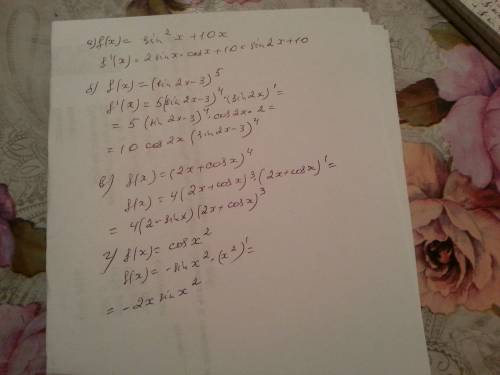 а) f(x) = sin²x + 10x
f'(x) = 2 sinx · cosx + 10 = sin2x + 10
б) f(x) = (sin2x - 3)⁵
f'(x) = 5(sin2x - 3)⁴ · (sin2x)' =
= 5 (sin2x - 3)⁴ · cos2x · 2 =
= 10 cos2x (sin2x - 3)⁴
в) f(x) = (2x + cosx)⁴
f(x) = 4(2x + cosx)³ · (2x + cosx)' =
= 4(2 - sinx)(2x + cosx)³
г) f(x) = cosx²
f(x) = -sinx² · (x²)' =
= -2x sinx²